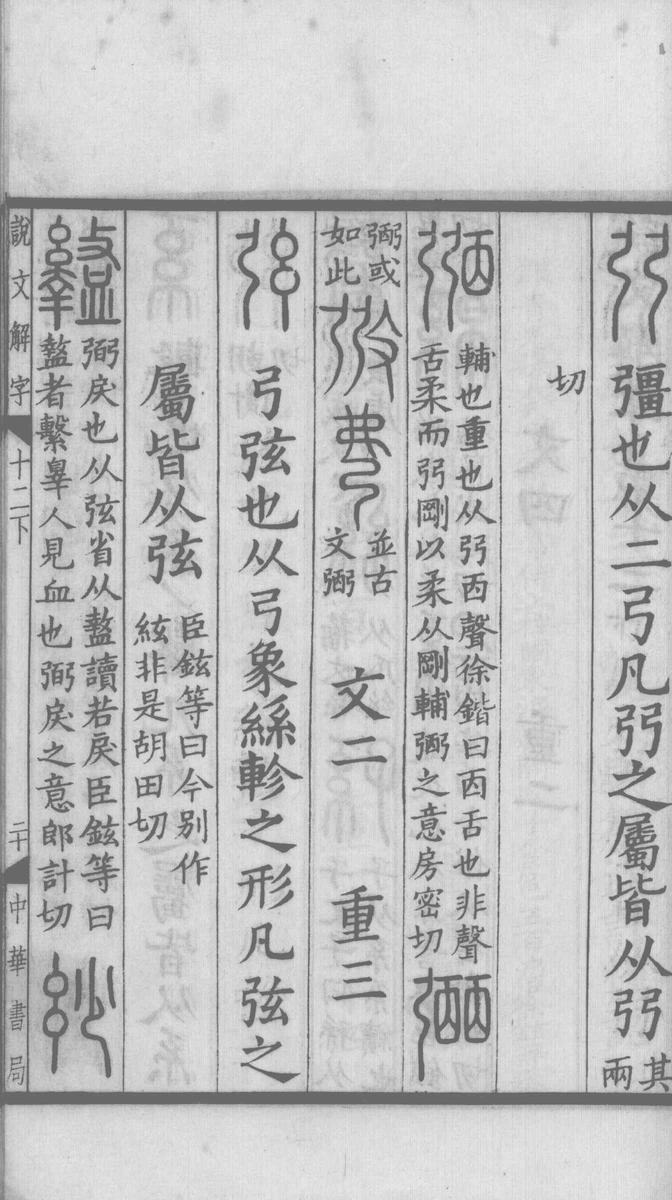 弜 彊也从二弓凡弜之屬皆从弜 其兩
切
弼 輔也重也从弜㐁聲徐鍇曰㐁舌也非聲
舌柔而弜剛以柔从剛輔弼之意房密切
弼或
如此
並古
文弼
文二 重三
弦 弓弦也从弓象絲軫之形凡弦之
屬皆从弦 臣鉉等曰今别作
絃非是胡田切
盭 弼戾也从弦省从盩讀若戾臣鉉等曰
盩者擊辠人見血也弼戾之意郎計切
說文解字 十二下 二十 中華書局